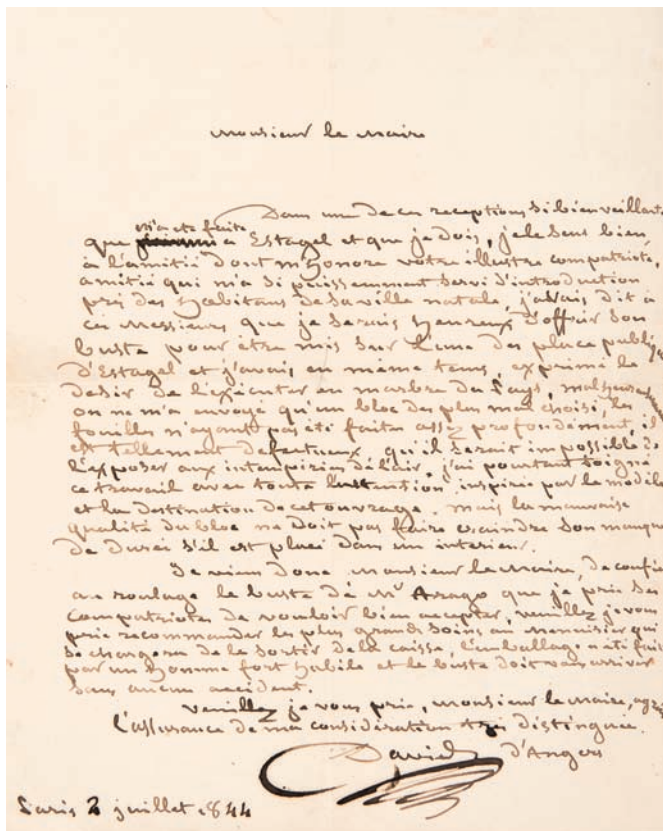 Monsieur le Maire
Dans une de ces receptions si bienveillante
m'a été faite
que a Estagel et que je dois, je le sens bien,
à l'amitié dont m'honore votre illustre compatriote,
amitié qui m'a si puissamment servi d'introduction
près des habitans de sa ville natale, j'avais dit à
ces Messieurs que je serais heureux d'offrir son
buste pour être mis sur l'une des place publiq
d'Estagel et j'avais, en même tems, exprimé le
desir de l'exécuter en marbre du Pays, malheureusement
on ne m'a envoyé qu'un bloc des plus mal choisi, les
fouilles n'ayant pas été faites assez profondement, il
est tellement defectueux qu'il serait impossible de
l'exposer aux intempéries de l'air, j'ai pourtant soigné
ce travail avec toute l'attention inspirée par le modèle
et la destination de cet ouvrage. mais la mauvaise
qualité du bloc ne doit pas faire craindre son manque
de durée s'il est placé dans un interieur.
Je viens donc Monsieur le Maire, de confier
au roulage le buste de Mr Arago que je prie ses
compatriotes de vouloir bien accepter, veuillez je vous
prie recommander les plus grands soins au menuisier qui
se chargera de le sortir de la caisse, l'emballage a été fait
par un homme fort habile et le buste doit vous arriver
sans aucun accident.
Veuillez je vous prie, Monsieur le Maire, agré
l'assurance de ma considération très distinguée.
David d'Angers
Paris 2 juillet 1844